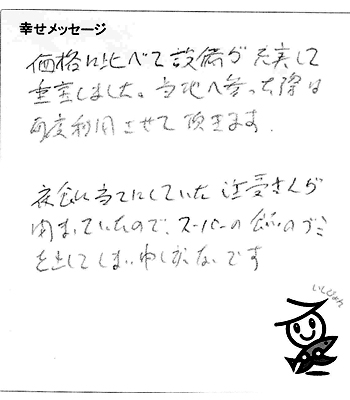 幸せメッセージ
価格に比べて設備が充実して
重宝しました。当地へ参った際は
再度利用させて頂きます.
夜食に当てにしていた
閉まっていたので、スーパーの
を出してしまい申し訳ないです